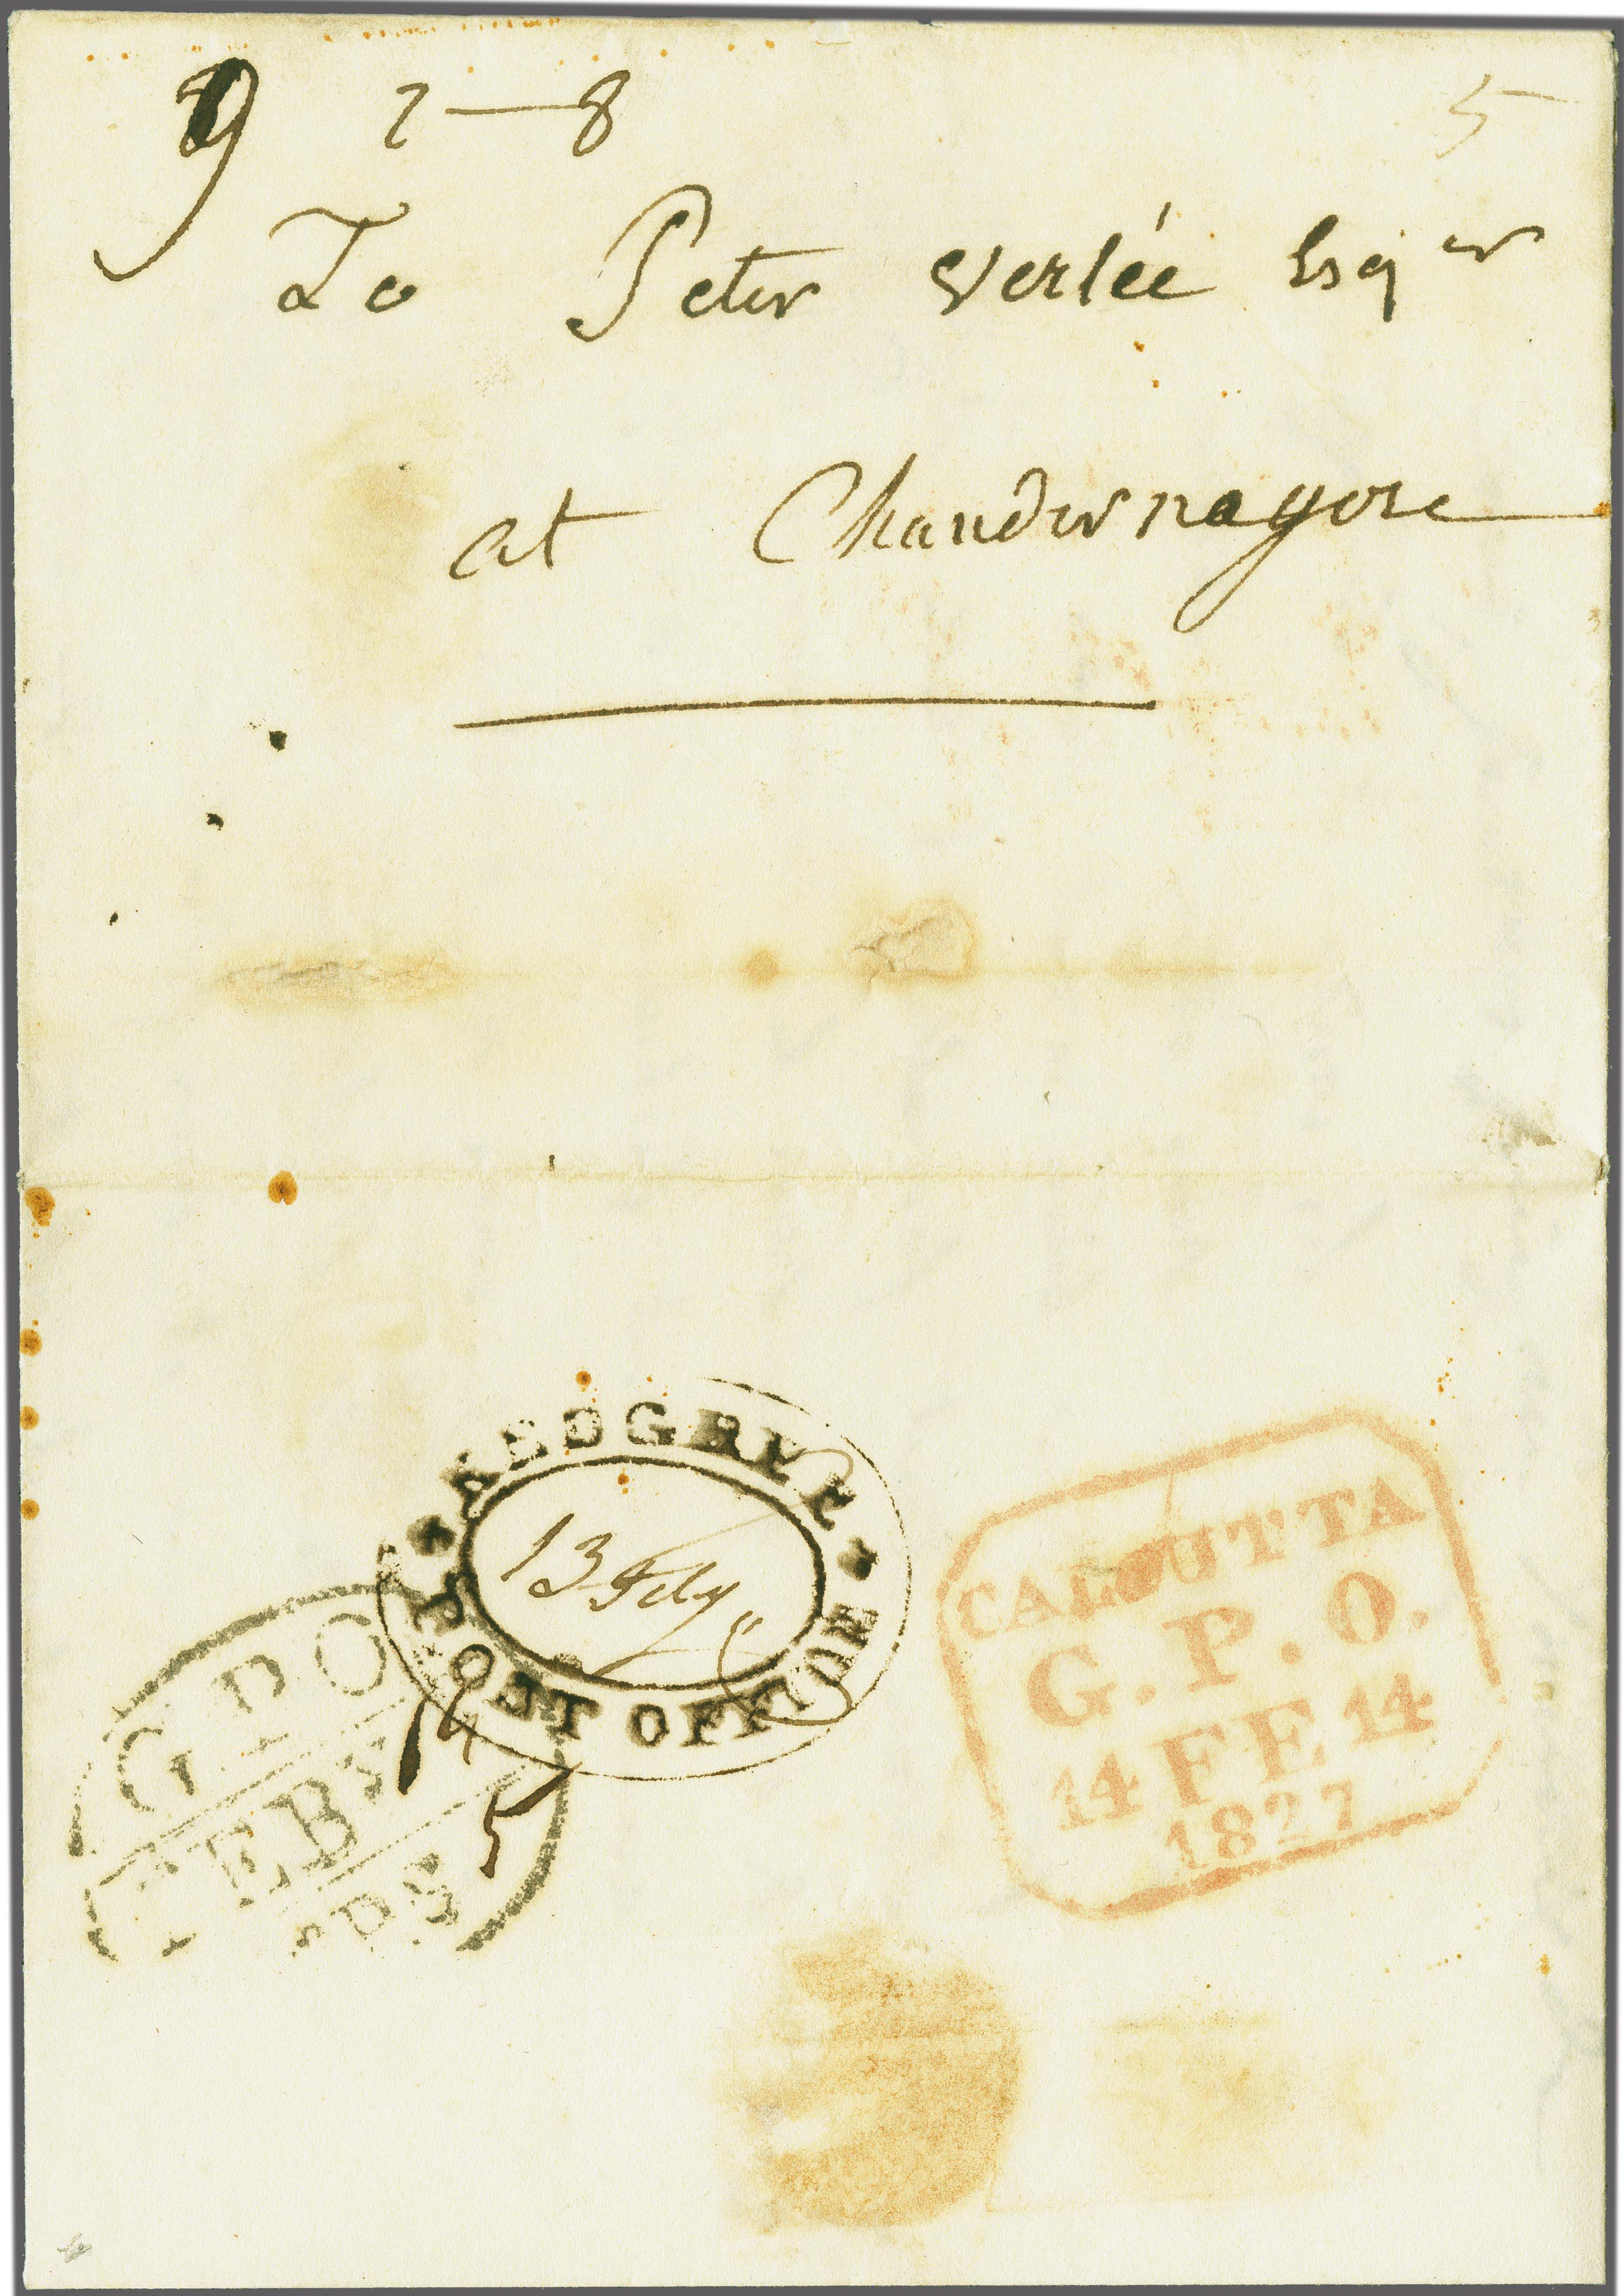 9 2—8
5
To Peter Verlée Esqr
at Chandernagore
KEDGREE
13 Feby
POST OFFICE
CALCUTTA
G.P.O.
14 FE 14
1827
G.P.O
FEBY
15